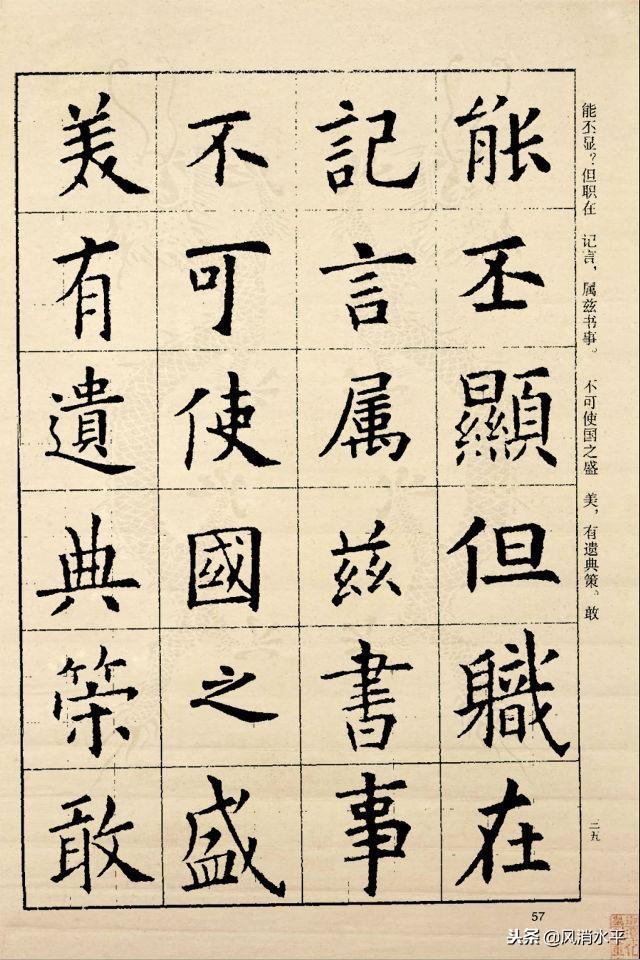 能丕顯但職在
記言属兹書事
不可使國之盛
美有遺典策敢
能丕显？但职在　记言，属兹书事。　不可使国之盛　美，有遗典策。敢
二五
57
头条@风消水平